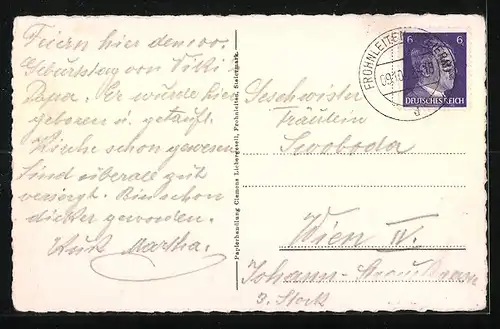 Feiern hier den 100.
Geburtstag von Viki
Papa. Er wurde hier
geboren u. getauft.
Kirche schon gewesen
Sind überall gut
versorgt. Bin schon
dicker geworden.
Martha.
Papierhandlung Clemens Liebergesell, Frohnleiten, Steiermark.
FROHNLEITEN
6 6
DEUTSCHES REICH
Geschwister
Fräulein
Swoboda
Wien IV.
Johann-Strauss
3. Stock